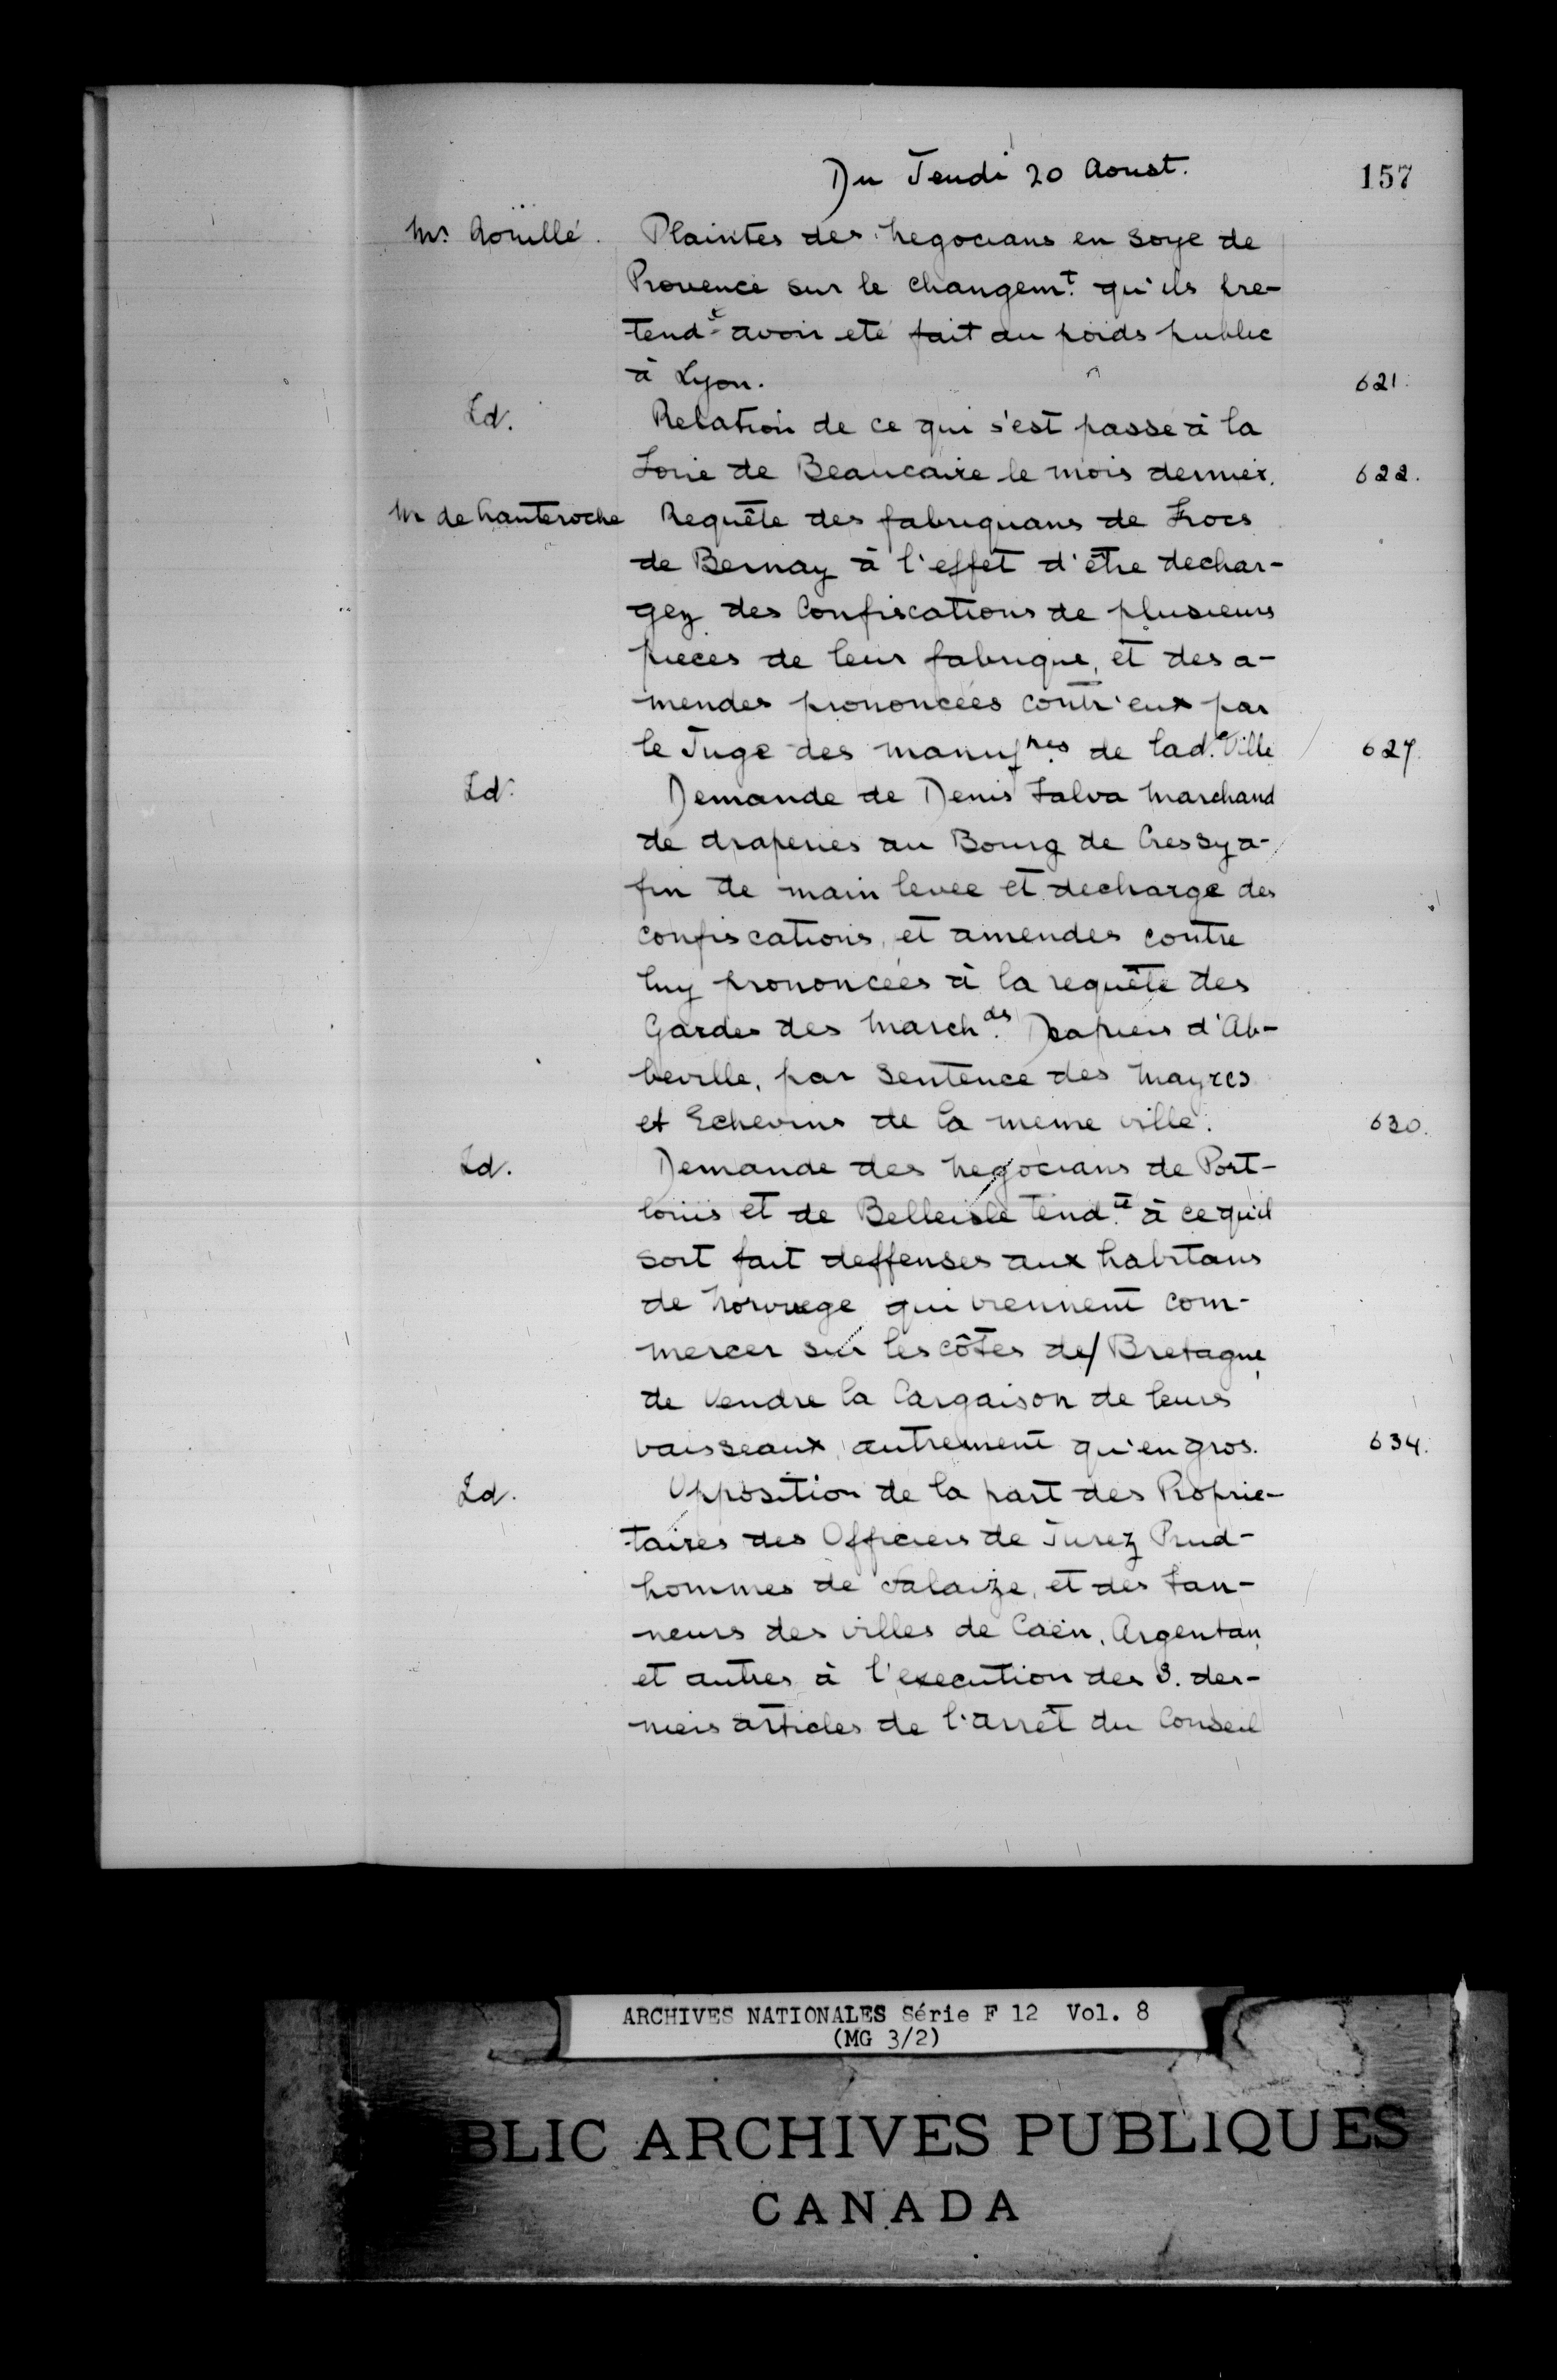 Du Jeudi 20 Aoust.
157
Mr. Roüillé. Plaintes des Negocians en soye de
Provence sur le changemt. qu'ils pre-
tendt. avoir eté fait au poids public
à Lyon. 621.
Id. Relation de ce qui s'est passé à la
Foire de Beaucaire le mois dernier. 622.
Mr de hauteroche Requête des fabriquans de Frocs
de Bernay à l'effet d'être dechar-
gez des Confiscations de plusieurs
pieces de leur fabrique, et des a-
mendes prononcées contr'eux par
le Juge des manufres de lad. Ville 627.
Id. Demande de Denis Falva Marchand
de draperies au Bourg de Cressy a-
fin de main levée et decharge des
confiscations, et amendes contre
luy prononcées à la requête des
Gardes des Marchds. Drapiers d'Ab-
beville, par Sentence des Mayres
et Echevins de la meme ville. 630.
Id. Demande des Negocians de Port-
louis et de Belleisle tendte. à ce qu'il
soit fait deffenses aux habitans
de Norwege qui viennent com-
mercer sur les côtes de/ Bretagne,
de Vendre la Cargaison de leurs
vaisseaux, autrement qu'en gros. 634.
Id. Opposition de la part des Proprie-
taires des Officiers de Jurez Prud-
hommes de Falaize, et des Tan-
neurs des villes de Caën, Argentan,
et autres à l'execution des 3. der-
niers articles de l'arrêt du Conseil
ARCHIVES NATIONALES Série F 12 Vol. 8
(MG 3/2)
BLIC ARCHIVES PUBLIQUES
CANADA